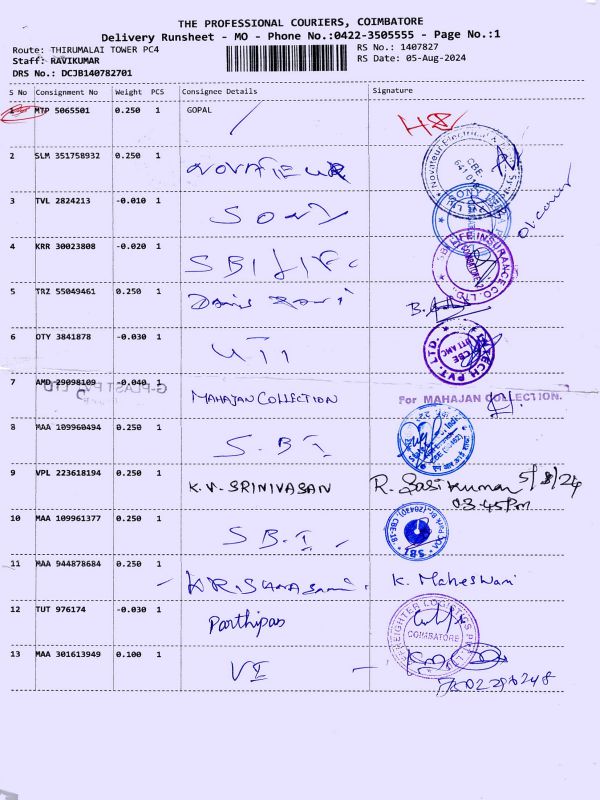 THE PROFESSIONAL COURIERS, COIMBATORE
Delivery Runsheet - MO - Phone No.:0422-3505555 - Page No.:1
Route: THIRUMALAI TOWER PC4
RS No.: 1407827
Staff: RAVIKUMAR
RS Date: 05-Aug-2024
DRS No.: DCJB140782701
S No Consignment No Weight PCS Consignee Details Signature
1 MTP 5065501 0.250 1 GOPAL
2 SLM 351758932 0.250 1
3 TVL 2824213 -0.010 1 SONY
4 KRR 30023808 -0.020 1 SBI Life
SBI LIFE INSURANCE CO. LTD.
5 TRZ 55049461 0.250 1
6 OTY 3841878 -0.030 1 UTI
7 AMD 29098109 -0.040 1 MAHAJAN COLLECTION For MAHAJAN COLLECTION.
8 MAA 109960494 0.250 1 S.B.I
9 VPL 223618194 0.250 1 K.V. SRINIVASAN R. Sasikumar 5/8/24
03.45Pm
10 MAA 109961377 0.250 1 S.B.I
11 MAA 944878684 0.250 1 K. Maheswari
12 TUT 976174 -0.030 1 Parthipas
COIMBATORE
13 MAA 301613949 0.100 1 VI